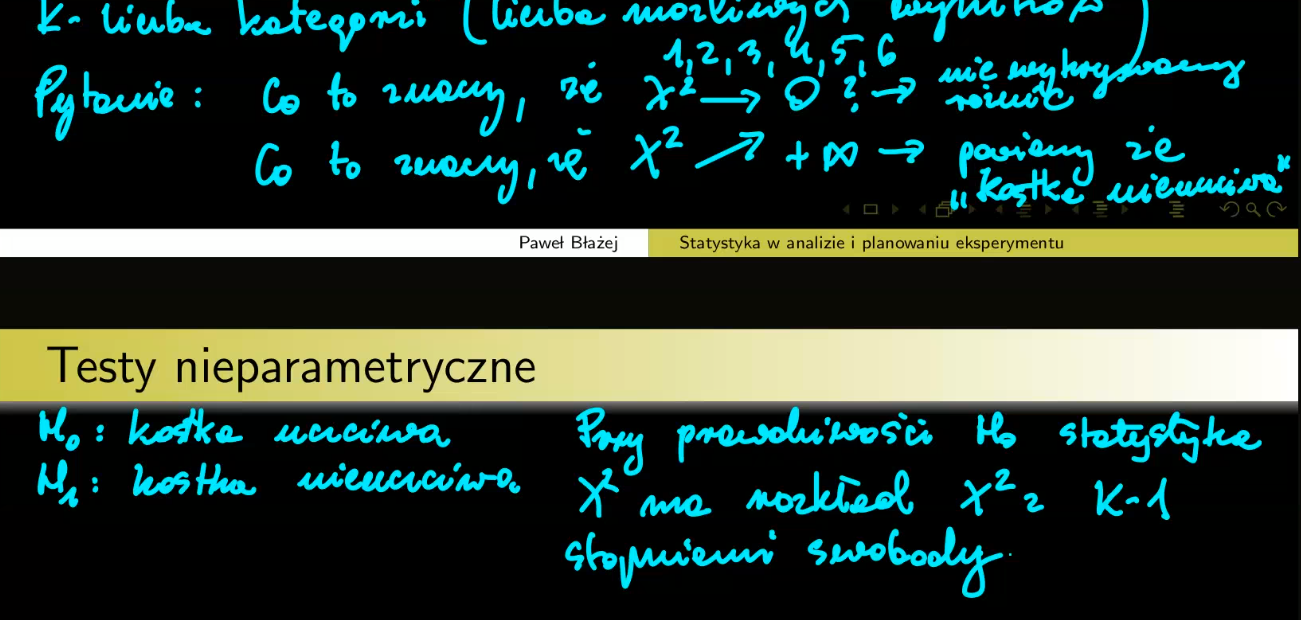 K - liczba kategorii (liczba możliwych wyników)
1, 2, 3, 4, 5, 6
Pytanie: Co to znaczy, że χ² → 0 ? → nie wykrywamy różnic
Co to znaczy, że χ² ↗ +∞ → powiemy że „kostka nieuczciwa"
Paweł Błażej Statystyka w analizie i planowaniu eksperymentu
Testy nieparametryczne
H₀: kostka uczciwa
H₁: kostka nieuczciwa
Przy prawdziwości H₀ statystyka
χ² ma rozkład χ² z K-1
stopniami swobody.